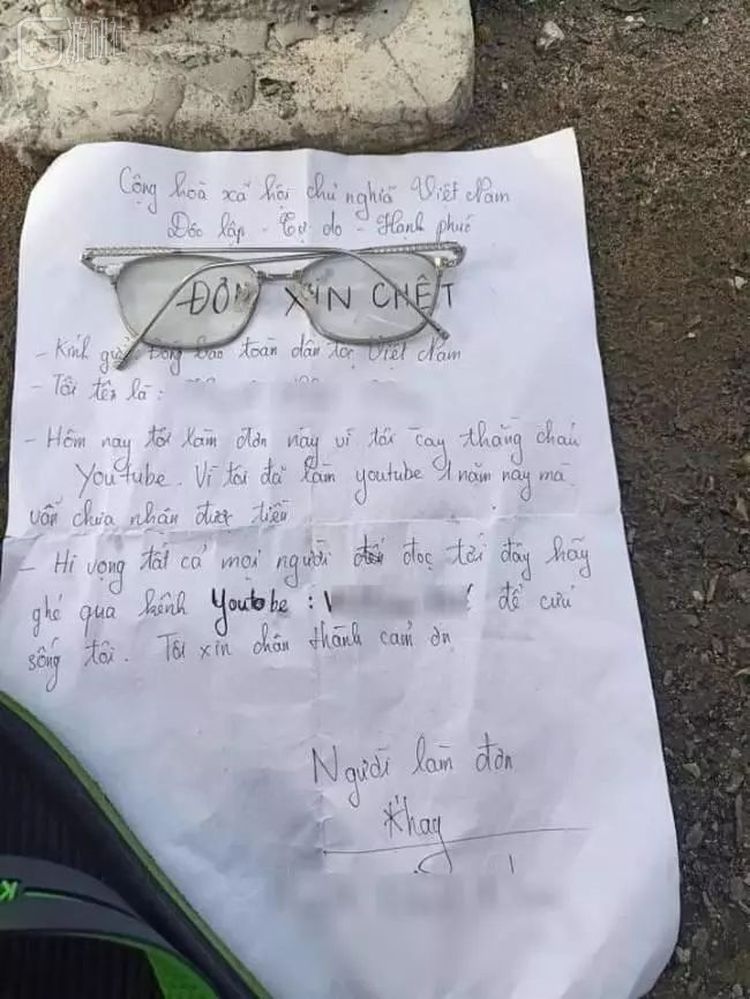 游研社
Cộng hoà xã hội chủ nghĩa Việt Nam
Độc lập - Tự do - Hạnh phúc
ĐƠN XIN CHẾT
- Kính gửi Đồng bào toàn dân tộc Việt Nam
- Tôi tên là :
- Hôm nay tôi làm đơn này vì tôi cay thằng cháu
Youtube. Vì tôi đã làm youtube 1 năm nay mà
vẫn chưa nhận được tiền
- Hi vọng tất cả mọi người đọc tới đây hãy
ghé qua kênh Youtube : để cứu
sống tôi. Tôi xin chân thành cảm ơn
Người làm đơn
Khay
K